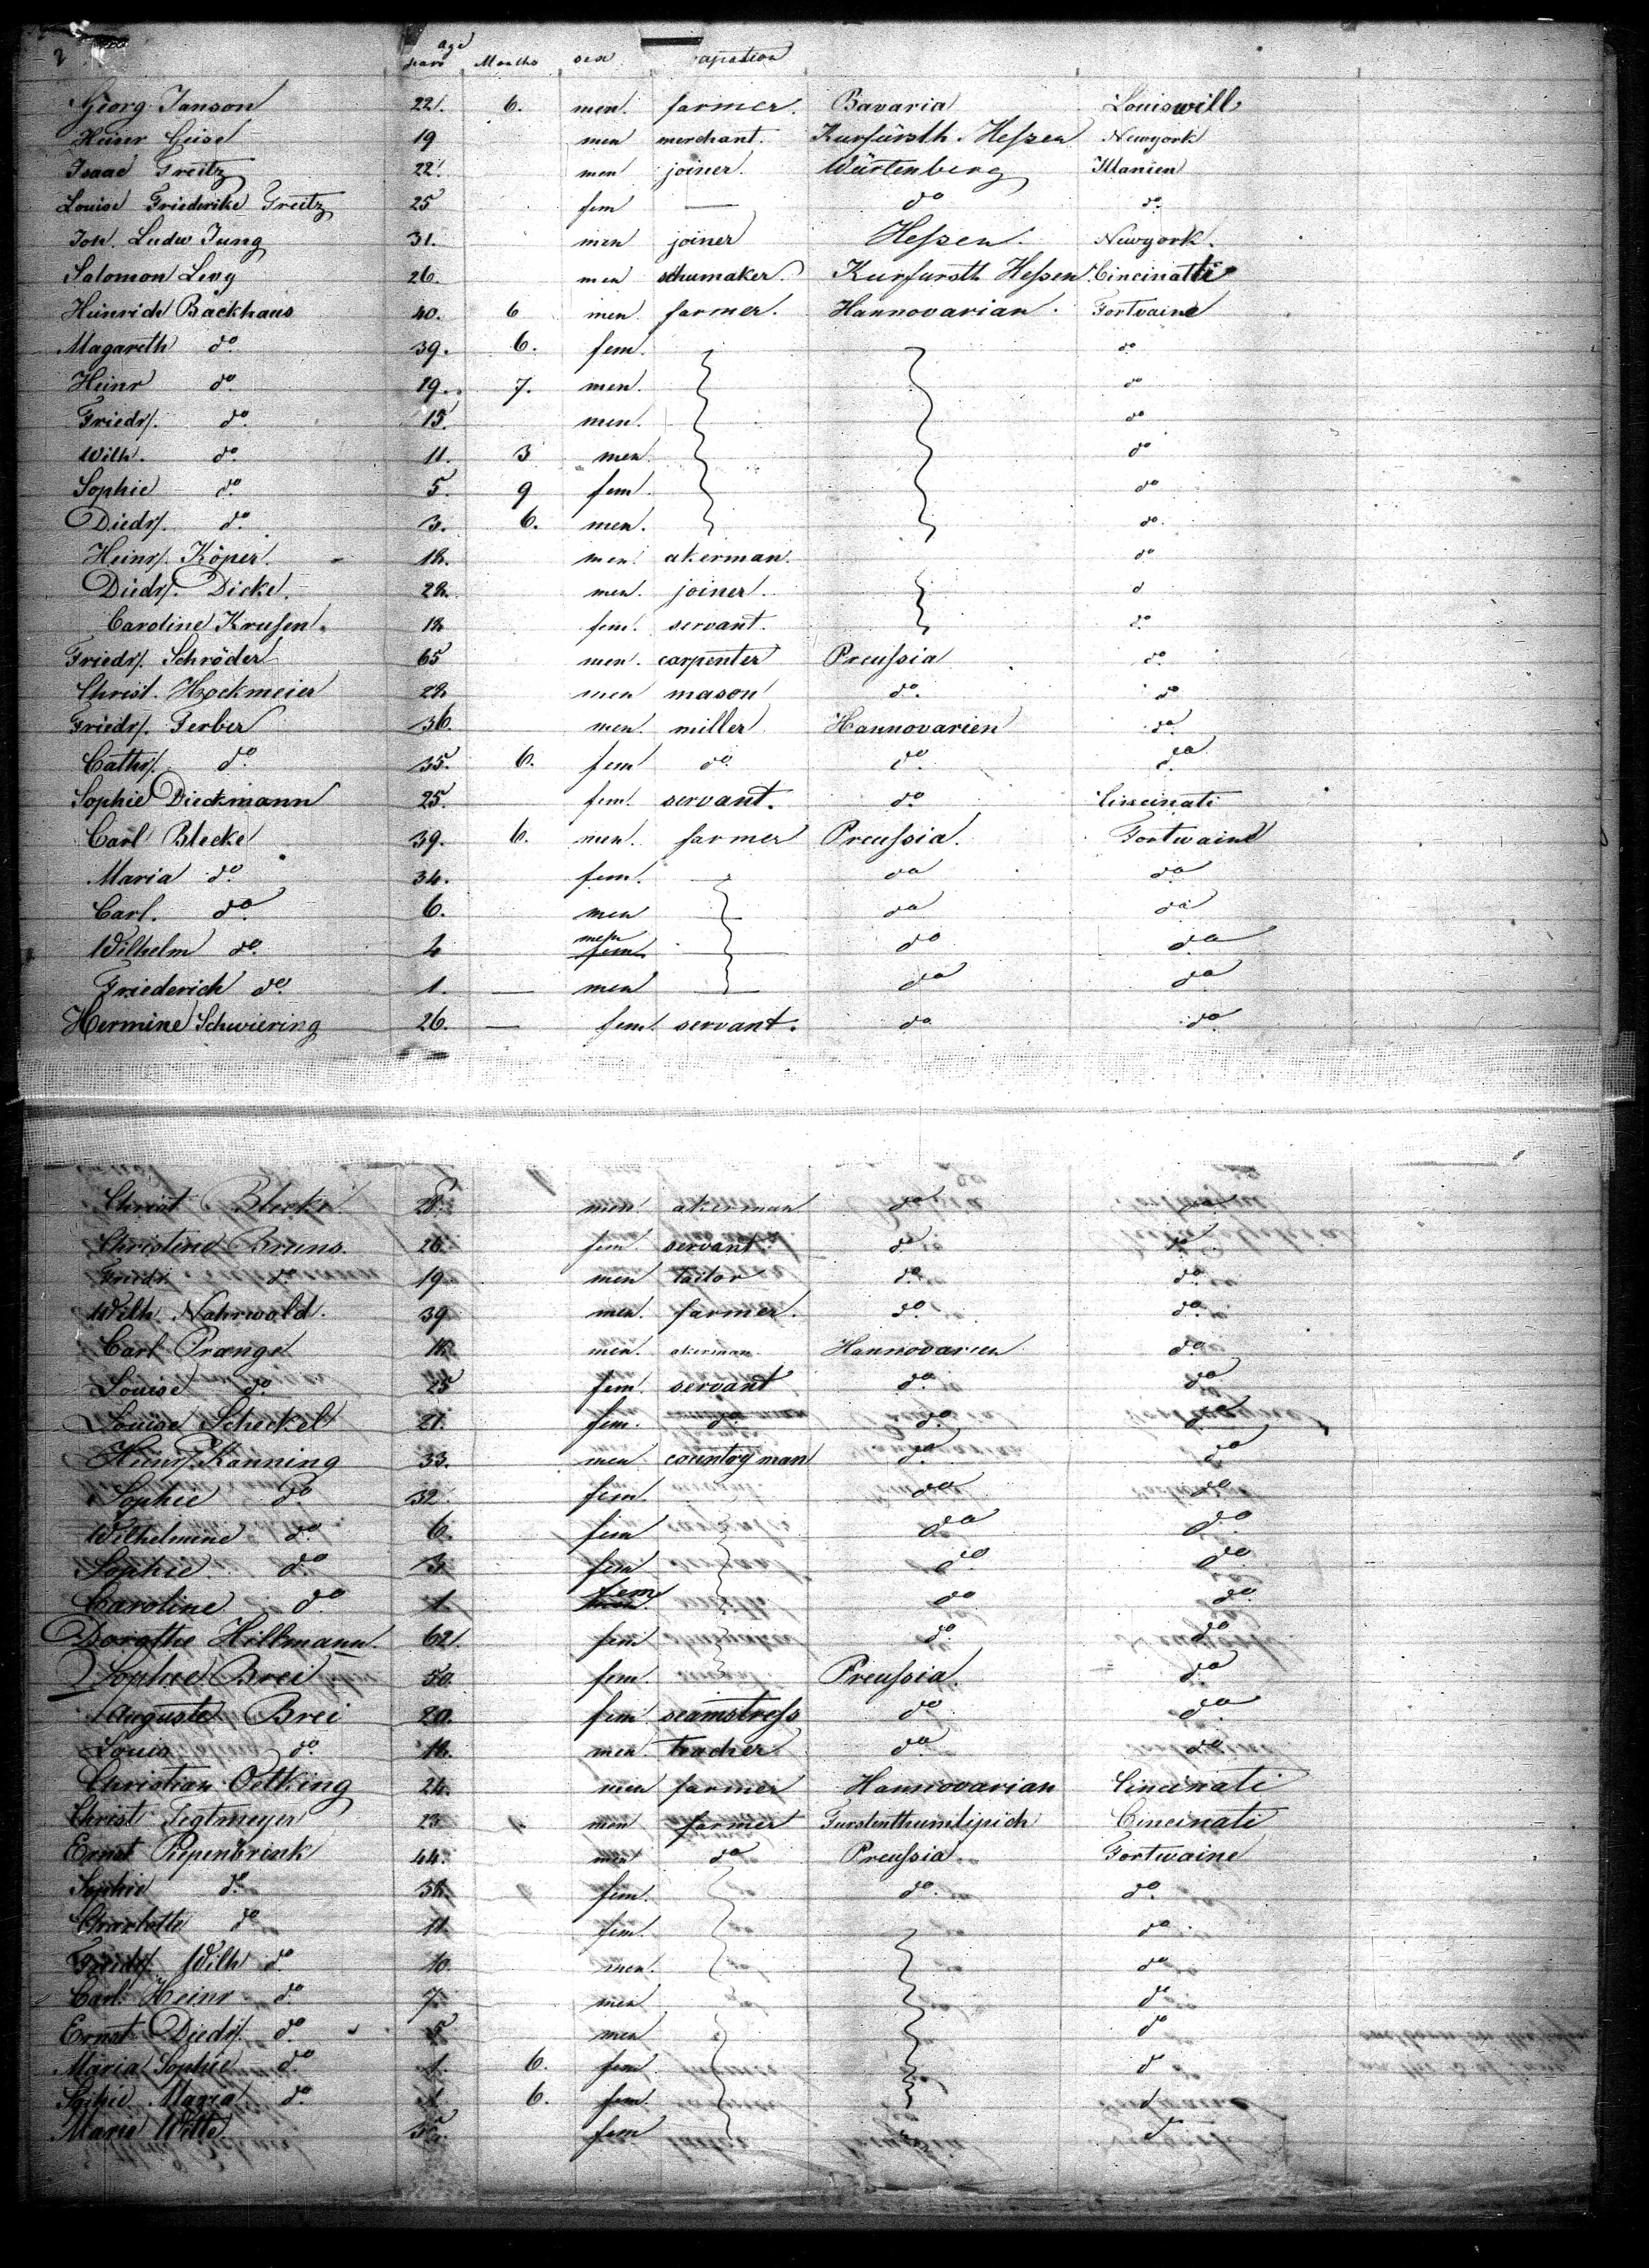 2
Age
years Months sex
Georg Janson 22. 6. men. farmer. Bavaria Louiswill
19 men merchant. Kurfürsth. Heſsen Newyork
Isaac Greitz 22. men joiner. Würtenberg
Louise Friederike Greitz 25 fem — do do.
Joh. Ludw Jung 31. men joiner Heſsen. Newyork.
Salomon Levy 26. men schumaker. Kurfursth Heſsen Cincinatti
Heinrich Backhaus 40. 6 men. farmer. Hannovarian. Fortvaine
Magareth do. 39. 6. fem. do
Heinr do. 19. 7. men. do
Friedr. do. 15. men. do
Wilh. do. 11. 3 men. do
Sophie do. 5. 9 fem. do
Diedr. do. 3. 6. men. do.
Heinr. Köper. 18. men. akerman. do
Diedr. Dicke. 28. men. joiner. d
Caroline Kruſen. 18 fem. servant. do.
Friedr. Schröder 65 men. carpenter Preuſsia do.
Christ. Hockmeier 28 men mason do. do
Friedr. Ferber 36. men. miller Hannovarien do
Cathr. do. 35. 6. fem do. do. do.
Sophie Dieckmann 25. fem. servant. do Cincinati
Carl Blecke 39. 6. men. farmer Preuſsia. Fortwaine
Maria do. 34. fem. do do
Carl. do. 6. men — do do
Wilhelm do. 4 men fem — do do
Friederich do. 1. — men — do do
Hermine Schwiering 26. — fem. servant. do do
Christ Blecke men akerman do
Christine Bruns. 26 fem. servant. do
Friedr. do. 19 men tailor do. do.
Wilh. Nahrwold. 39 men. farmer. do. do.
Carl Prange 18. men. akerman. Hannovarien do.
Louise do. 25 fem. servant do. do.
Louise Scheckel 21. fem. do do. do
Heinr. Kanning 33. men country man do do
Sophie do. 32. fem. do do
Wilhelmine do. 6. fem do do
Sophie do. 3. fem do do
Caroline do. 1. fem do. do.
Dorothe Hillmann. 62. fem do. do
Sophie Brei 50. fem. Preuſsia. do
Auguste Brei 20. fem seamstreſs do do.
Louis do. 18. men. teacher do do
Christian Oetking 24. men farmer Hannovarian Cincinati
Christ Tegtmeyer 23 men farmer Furstenthumlipich Cincinati
Ernst Piepenbrink 44. men do Preuſsia. Fortwaine
Sophie do. 38. fem. do. do.
Charlotte do 11. fem. do.
Friedr. Wilh do. 10. men. do
Carl. Heinr do. 7. men do
Ernst Diedr. do. 5 men do
Maria Sophie do. 1. 6. fem d
Sophie Maria do. 1 6. fem. d
Marie Witte. fem d